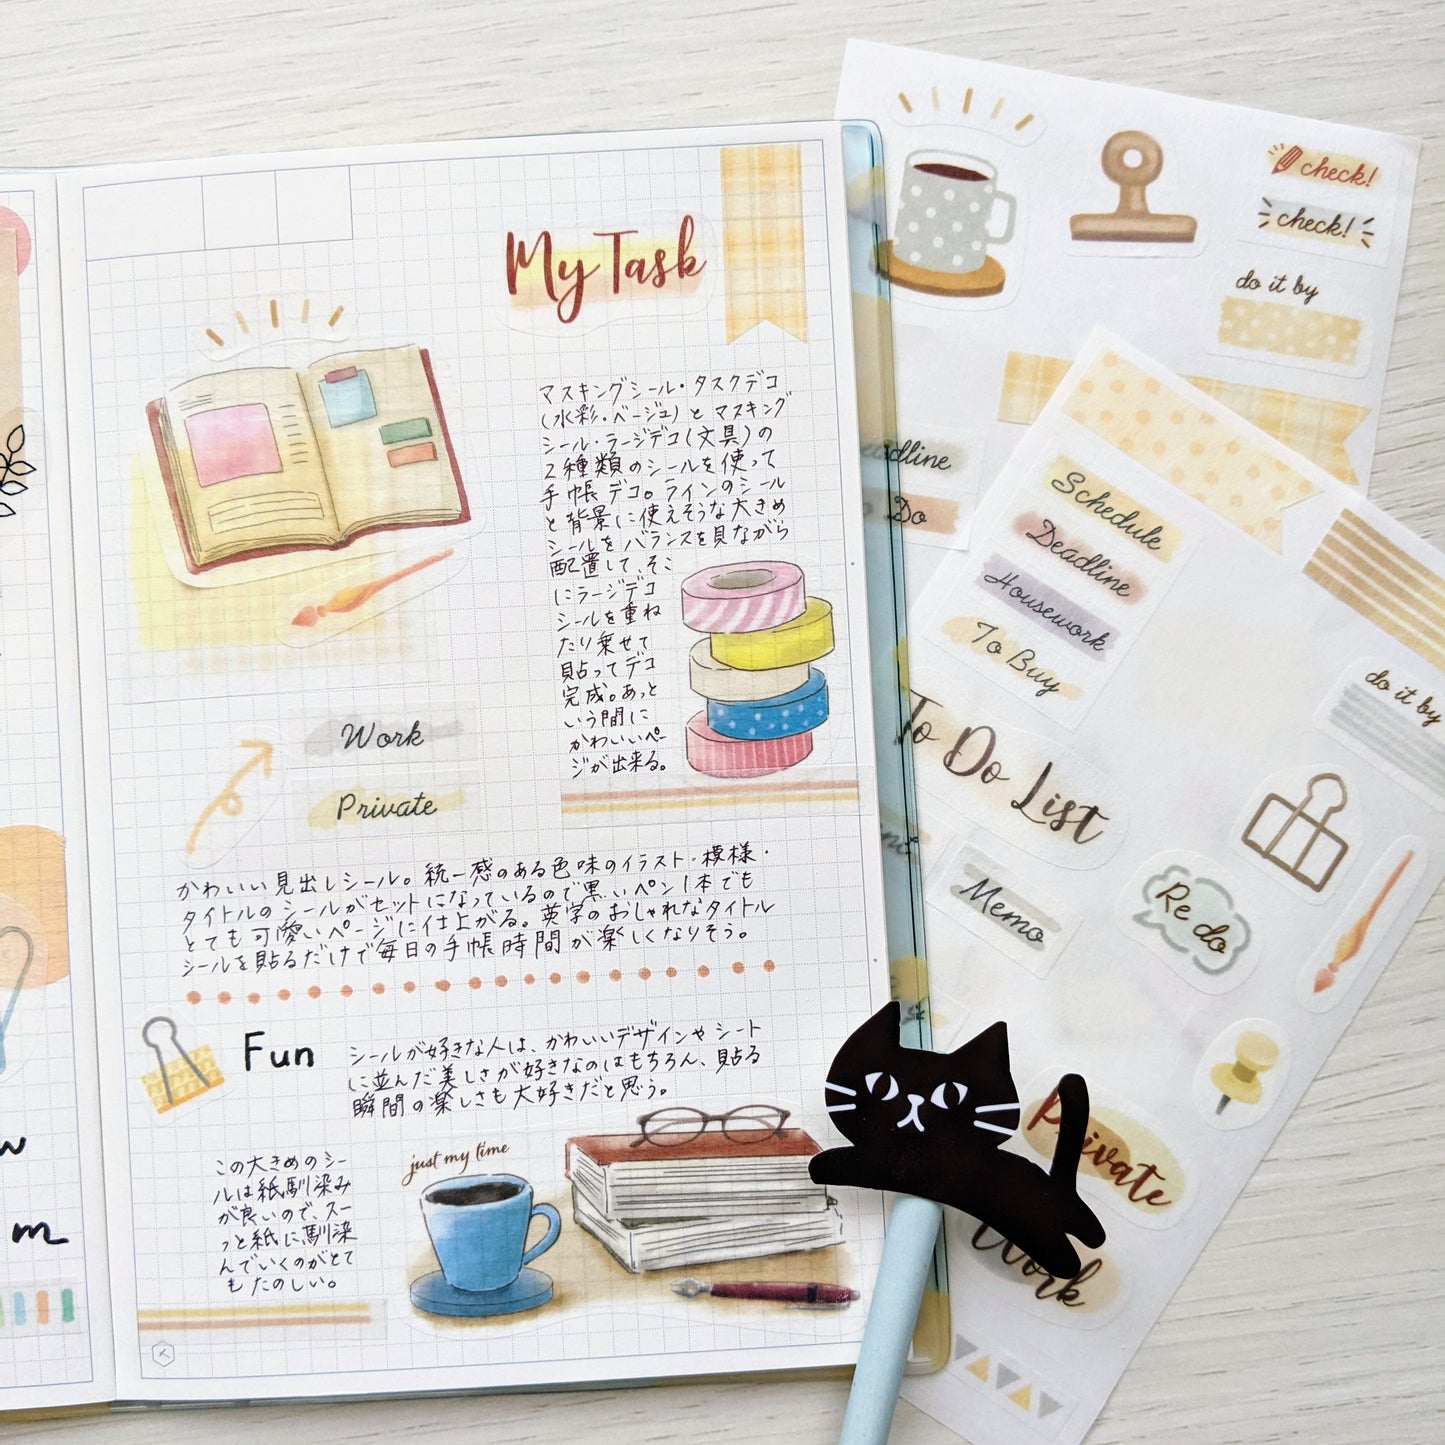 My Task
マスキングシール・タスクデコ
(水彩・ベージュ)とマスキング
シール・ラージデコ(文具)の
2種類のシールを使って
手帳デコ。ラインのシール
と背景に使えそうな大きめ
シールをバランスを見ながら
配置して、そこ
にラージデコ
シールを重ね
たり乗せて
貼ってデコ
完成。あっと
いう間に
かわいいペー
ジが出来る。
Work
Private
かわいい見出しシール。統一感のある色味のイラスト・模様・
タイトルのシールがセットになっているので黒いペン1本でも
とても可愛いページに仕上がる。英字のおしゃれなタイトル
シールを貼るだけで毎日の手帳時間が楽しくなりそう。
Fun
シールが好きな人は、かわいいデザインやシート
に並んだ美しさが好きなのはもちろん、貼る
瞬間の楽しさも大好きだと思う。
この大きめのシー
ルは紙馴染み
が良いので、スー
っと紙に馴染
んでいくのがとて
もたのしい。
just my time
check!
check!
do it by
Do
Schedule
Deadline
Housework
To Buy
do it by
To Do List
Memo
Re do
Private
Work
m